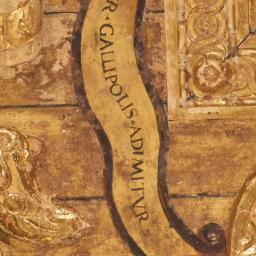 R · GALLIPOLIS · ADIMITVR